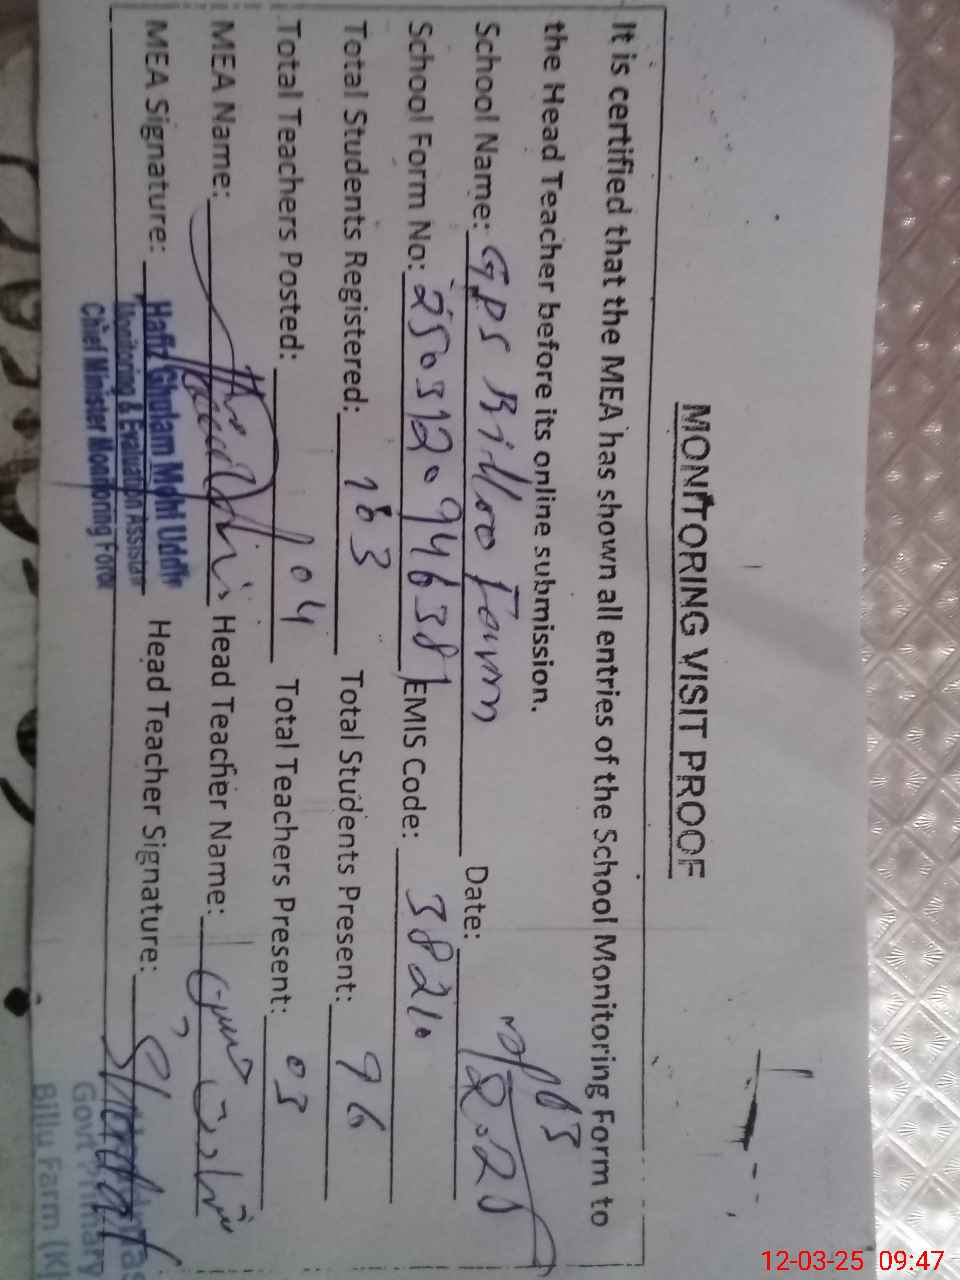 MONITORING VISIT PROOF
It is certified that the MEA has shown all entries of the School Monitoring Form to
the Head Teacher before its online submission.
School Name: GPS Billoo Farm Date:
School Form No: 250312094638 EMIS Code: 38210
Total Students Registered: 183 Total Students Present: 96
Total Teachers Posted: 04 Total Teachers Present: 03
MEA Name: Head Teacher Name:
MEA Signature: Head Teacher Signature:
Hafiz Ghulam Mohi Uddin
Monitoring & Evaluation Assistant
Chief Minister Monitoring Force
Govt Primary
Billu Farm (K
12-03-25 09:47